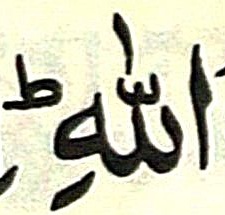 اللّٰهِ ؕ